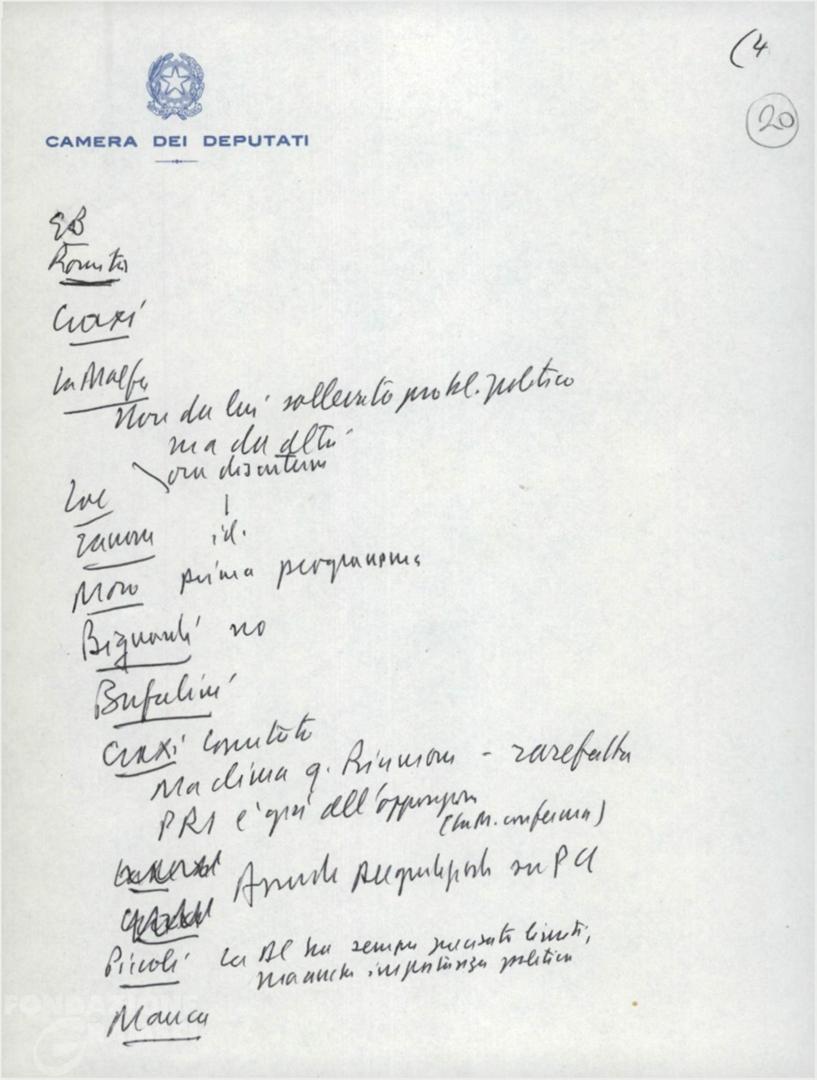 (4
20
CAMERA DEI DEPUTATI
EB
Romita
Craxi
La Malfa
Non da lui sollevato probl. politico
ma da altri
ora discuterne
Zac
Zanone id.
Moro prima programma
Bignardi no
Bufalini
Craxi Comitato
Ma clima q. Riunioni - rarefatta
PRI è già all'opposizione
(La M. conferma)
su PCI
Piccoli La DC ha sempre precisato limiti,
ma anche importanza politica
Manca
FONDAZIONE